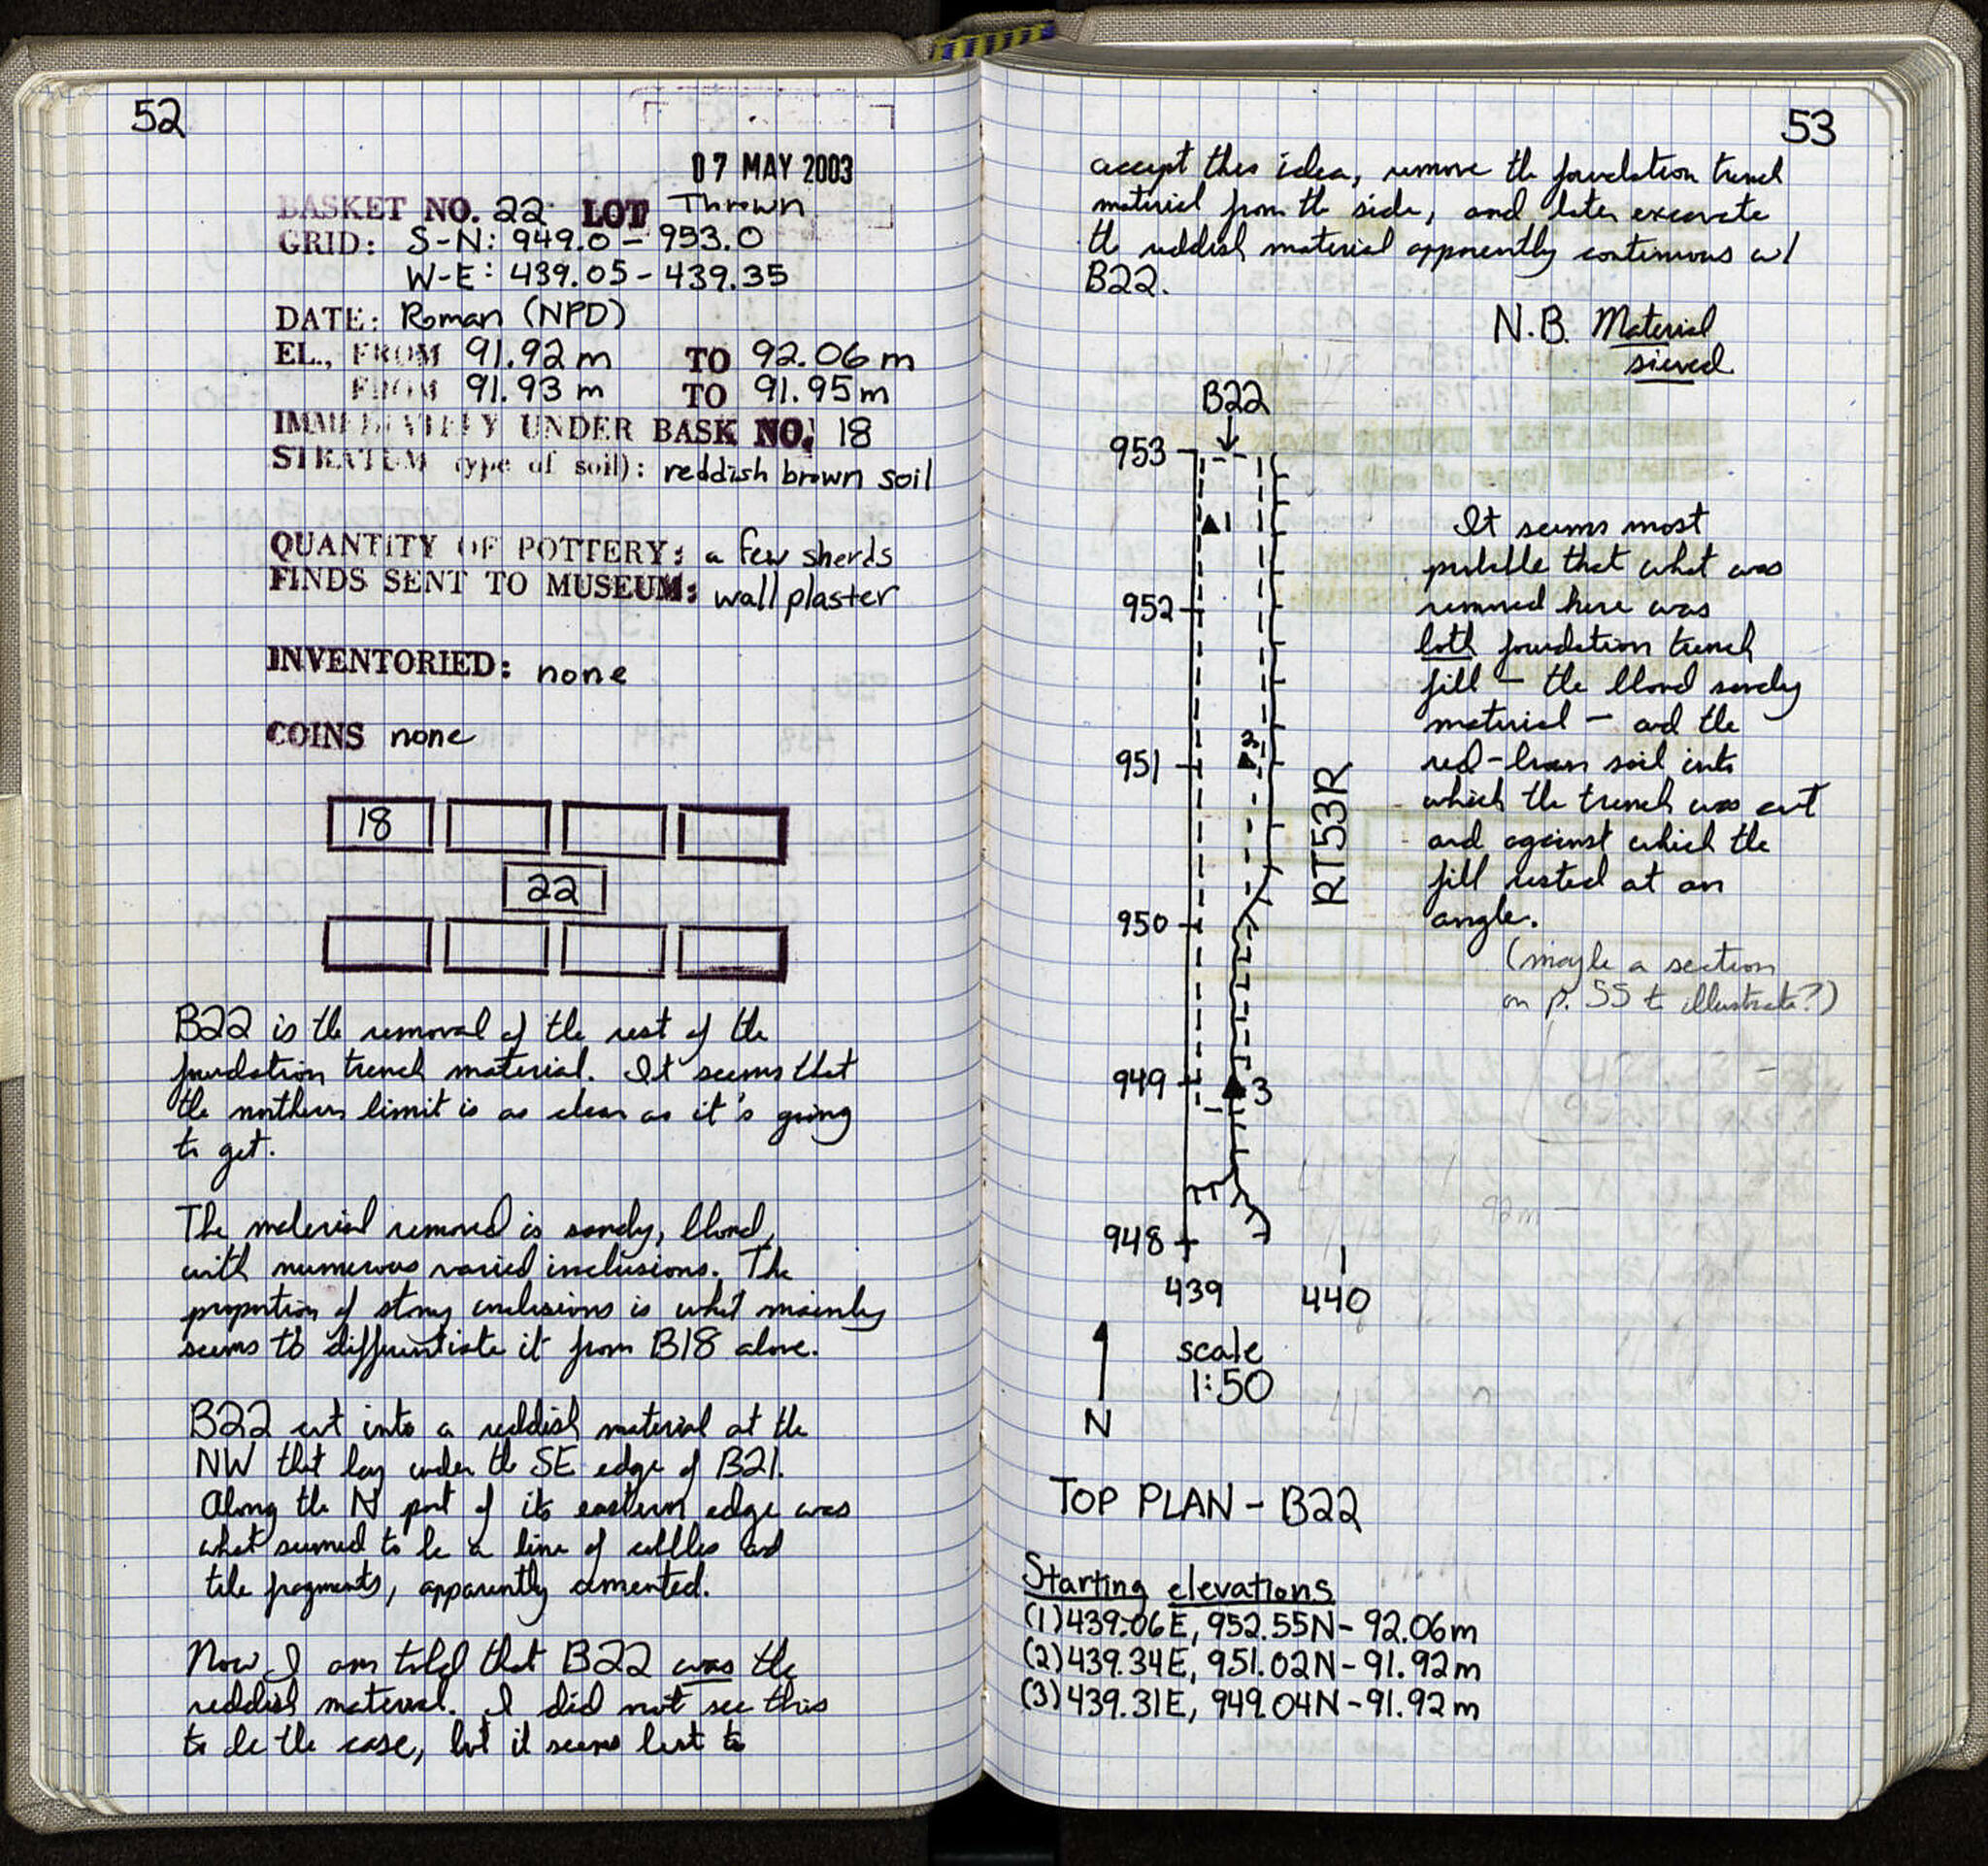 52
07 MAY 2003
BASKET NO. 22 LOT Thrown
GRID: S-N: 949.0 - 953.0
W-E: 439.05 - 439.35
DATE: Roman (NPD)
EL., FROM 91.92 m TO 92.06 m
FROM 91.93 m TO 91.95 m
IMMEDIATELY UNDER BASK NO. 18
STRATUM (type of soil): reddish brown soil
QUANTITY OF POTTERY: a few sherds
FINDS SENT TO MUSEUM: wall plaster
INVENTORIED: none
COINS none
18
22
B22 is the removal of the rest of the
foundation trench material. It seems that
the northern limit is as clear as it's going
to get.
The material removed is sandy, blond,
with numerous varied inclusions. The
proportion of stony inclusions is what mainly
seems to differentiate it from B18 above.
B22 cut into a reddish material at the
NW that lay under the SE edge of B21.
Along the N part of its eastern edge was
what seemed to be a line of cobbles and
tile fragments, apparently cemented.
Now I am told that B22 was the
reddish material. I did not see this
to be the case, but it seems best to
53
accept this idea, remove the foundation trench
material from the side, and later excavate
the reddish material apparently continuous w/
B22.
N.B. Material
sieved
B22
953
1
952
2
951
950
949
3
948
439 440
RT53R
It seems most
probable that what was
removed here was
both foundation trench
fill - the blond sandy
material - and the
red-brown soil into
which the trench was cut
and against which the
fill rested at an
angle.
(maybe a section
on p. 55 to illustrate?)
92m -
scale
1:50
N
TOP PLAN - B22
Starting elevations
(1) 439.06E, 952.55N - 92.06m
(2) 439.34E, 951.02N - 91.92m
(3) 439.31E, 949.04N - 91.92m